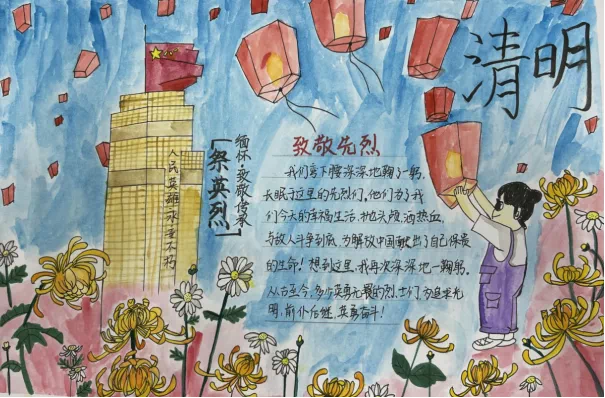 清明
致敬先烈
我们弯下腰深深地鞠了一躬,
长眠于这里的先烈们,他们为了我
们今天的幸福生活,抛头颅,洒热血,
与敌人斗争到底,为解放中国献出了自己保贵
的生命!想到这里,我再次深深地一鞠躬。
从古至今,多少英勇无畏的烈士们,为追求光
明,前仆后继,英勇奋斗!
缅怀·致敬·传承
「祭英烈」
人民英雄永垂不朽